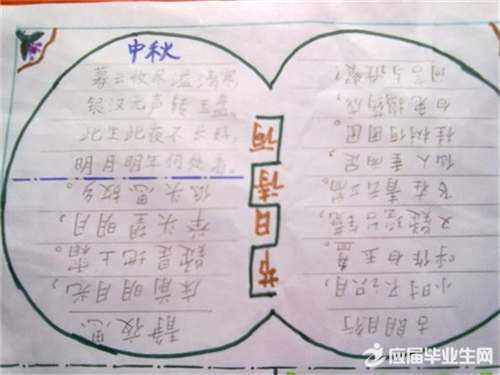 中秋
暮云收尽溢清寒
银汉无声转玉盘
此生此夜不长好
明月明年何处看。
节日诗词
静夜思
床前明月光，
疑是地上霜。
举头望明月，
低头思故乡。
古朗月行
小时不识月，
呼作白玉盘。
又疑瑶台镜，
飞在青云端。
仙人垂两足，
桂树何团团。
白兔捣药成，
问言与谁餐？
应届毕业生网